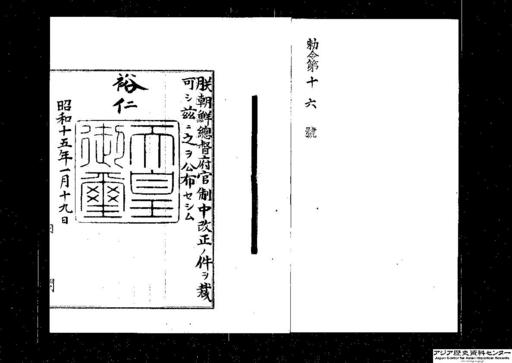 勅令第十六號
朕朝鮮總督府官制中改正ノ件ヲ裁
可シ茲ニ之ヲ公布セシム
裕仁
天皇
御璽
昭和十五年一月十九日
アジア歴史資料センター
Japan Center for Asian Historical Records